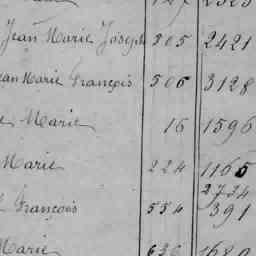 127
Jean Marie Joseph 305 2421
Jean Marie François 506 3128
Marie 16 1596
Marie 224 1165
2724
François 554 391
Marie 636 1680